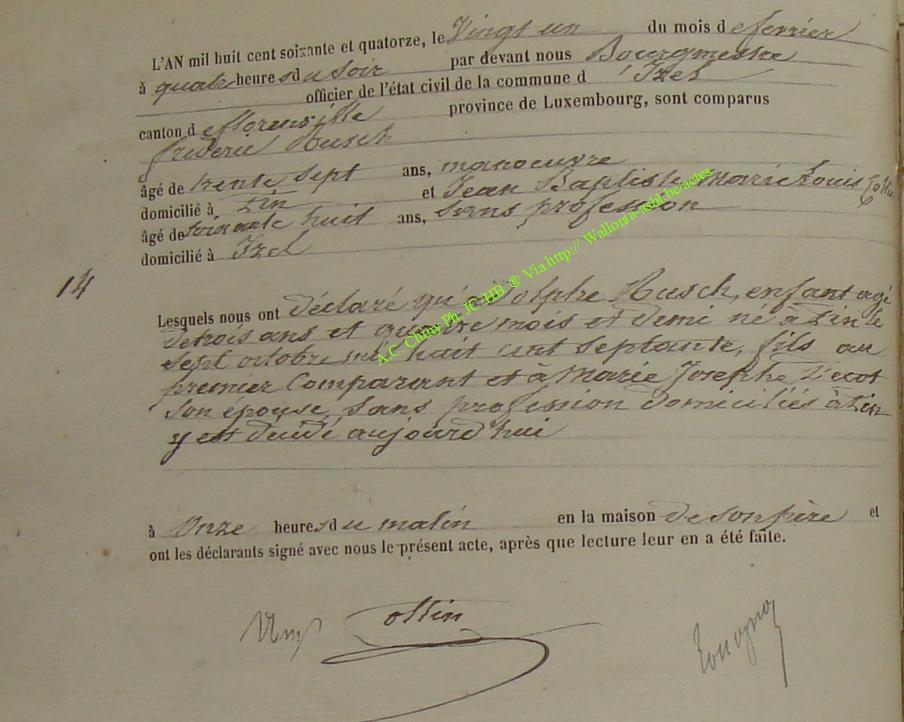 L'AN mil huit cent soixante et quatorze, le Vingt un du mois de fevrier
à quatre heures du soir par devant nous Bourgmestre
officier de l'état civil de la commune d'Izel
canton de florenville province de Luxembourg, sont comparus
frederic Husch
âgé de trente sept ans, manoeuvre
domicilié à Pin et Jean Baptiste Marie Louis
âgé de soixante huit ans, sans profession
domicilié à Izel
14
Lesquels nous ont déclaré qu'adolphe Husch, enfant agé
de trois ans et quatre mois et demi né à Pin le
sept octobre mil huit cent septante, fils au
premier Comparant et à Marie Josephe
son épouse, sans profession domiciliés à Pin
y est décédé aujourd'hui
à Onze heures du matin en la maison de son père et
ont les déclarants signé avec nous le présent acte, après que lecture leur en a été faite.
A.C. Chiny Ph. JC HB ® Via http:// Wallonia-asbl.be/actes